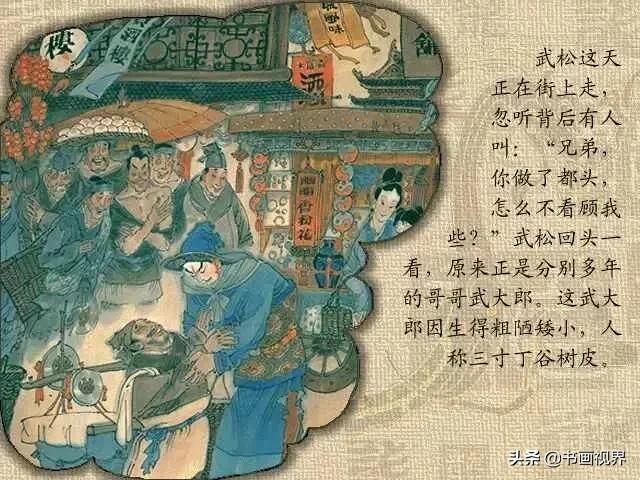 武松这天
正在街上走，
忽听背后有人
叫：“兄弟，
你做了都头，
怎么不看顾我
些？”武松回头一
看，原来正是分别多年
的哥哥武大郎。这武大
郎因生得粗陋矮小，人
称三寸丁谷树皮。
樓
樓
風味
酒
舖
香粉花
头条 @书画视界